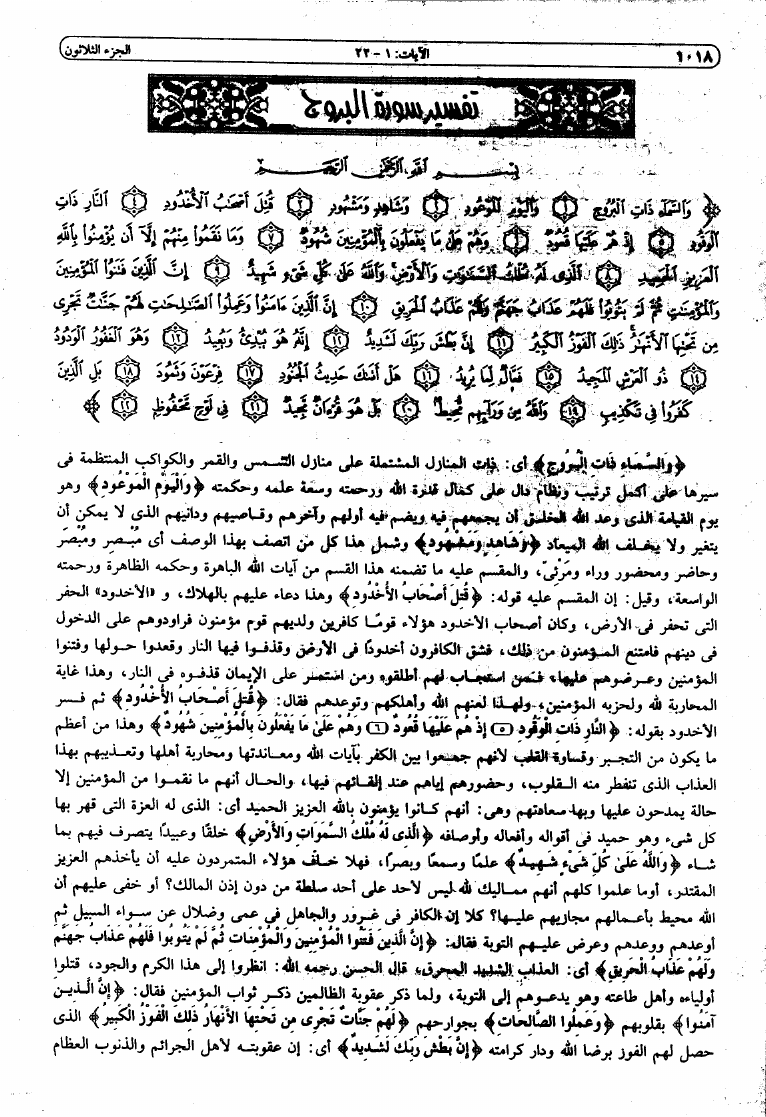 ١٠١٨
الآيات: ١ - ٢٢
الجزء الثلاثون
تفسير سورة البروج
بسم الله الرحمن الرحيم
﴿ وَالسَّمَاءِ ذَاتِ الْبُرُوجِ ١ وَالْيَوْمِ الْمَوْعُودِ ٢ وَشَاهِدٍ وَمَشْهُودٍ ٣ قُتِلَ أَصْحَابُ الْأُخْدُودِ ٤ النَّارِ ذَاتِ
الْوَقُودِ ٥ إِذْ هُمْ عَلَيْهَا قُعُودٌ ٦ وَهُمْ عَلَى مَا يَفْعَلُونَ بِالْمُؤْمِنِينَ شُهُودٌ ٧ وَمَا نَقَمُوا مِنْهُمْ إِلَّا أَنْ يُؤْمِنُوا بِاللَّهِ
الْعَزِيزِ الْحَمِيدِ ٨ الَّذِي لَهُ مُلْكُ السَّمَاوَاتِ وَالْأَرْضِ وَاللَّهُ عَلَى كُلِّ شَيْءٍ شَهِيدٌ ٩ إِنَّ الَّذِينَ فَتَنُوا الْمُؤْمِنِينَ
وَالْمُؤْمِنَاتِ ثُمَّ لَمْ يَتُوبُوا فَلَهُمْ عَذَابُ جَهَنَّمَ وَلَهُمْ عَذَابُ الْحَرِيقِ ١٠ إِنَّ الَّذِينَ ءَامَنُوا وَعَمِلُوا الصَّالِحَاتِ لَهُمْ جَنَّاتٌ تَجْرِي
مِن تَحْتِهَا الْأَنْهَارُ ذَلِكَ الْفَوْزُ الْكَبِيرُ ١١ إِنَّ بَطْشَ رَبِّكَ لَشَدِيدٌ ١٢ إِنَّهُ هُوَ يُبْدِئُ وَيُعِيدُ ١٣ وَهُوَ الْغَفُورُ الْوَدُودُ
١٤ ذُو الْعَرْشِ الْمَجِيدُ ١٥ فَعَّالٌ لِمَا يُرِيدُ ١٦ هَلْ أَتَاكَ حَدِيثُ الْجُنُودِ ١٧ فِرْعَوْنَ وَثَمُودَ ١٨ بَلِ الَّذِينَ
كَفَرُوا فِي تَكْذِيبٍ ١٩ وَاللَّهُ مِن وَرَائِهِم مُّحِيطٌ ٢٠ بَلْ هُوَ قُرْءَانٌ مَّجِيدٌ ٢١ فِي لَوْحٍ مَّحْفُوظٍ ٢٢ ﴾
﴿وَالسَّمَاءِ ذَاتِ الْبُرُوجِ﴾ أى: ذات المنازل المشتملة على منازل الشمس والقمر والكواكب المنتظمة فى
سيرها على أكمل ترتيب ونظام دال على كمال قدرة الله ورحمته وسعة علمه وحكمته ﴿وَالْيَوْمِ الْمَوْعُودِ﴾ وهو
يوم القيامة الذى وعد الله الخلق أن يجمعهم فيه ويضم فيه أولهم وآخرهم وقاصيهم ودانيهم الذى لا يمكن أن
يتغير ولا يخلف الله الميعاد ﴿وَشَاهِدٍ وَمَشْهُودٍ﴾ وشمل هذا كل من اتصف بهذا الوصف أى مبصر ومُبْصَر
وحاضر ومحضور وراء ومَرْئىّ، والمقسم عليه ما تضمنه هذا القسم من آيات الله الباهرة وحكمه الظاهرة ورحمته
الواسعة، وقيل: إن المقسم عليه قوله: ﴿قُتِلَ أَصْحَابُ الأُخْدُودِ﴾ وهذا دعاء عليهم بالهلاك، و «الأخدود» الحفر
التى تحفر فى الأرض، وكان أصحاب الأخدود هؤلاء قومًا كافرين ولديهم قوم مؤمنون فراودوهم على الدخول
فى دينهم فامتنع المؤمنون من ذلك، فشق الكافرون أخدودًا فى الأرض وقذفوا فيها النار وقعدوا حولها وفتنوا
المؤمنين وعرضوهم عليها، فمن استجاب لهم أطلقوه ومن استمر على الإيمان قذفوه فى النار، وهذا غاية
المحاربة لله ولحزبه المؤمنين، ولهذا لعنهم الله وأهلكهم وتوعدهم فقال: ﴿قُتِلَ أَصْحَابُ الأُخْدُودِ﴾ ثم فسر
الأخدود بقوله: ﴿النَّارِ ذَاتِ الْوَقُودِ ٥ إِذْ هُمْ عَلَيْهَا قُعُودٌ ٦ وَهُمْ عَلَىٰ مَا يَفْعَلُونَ بِالْمُؤْمِنِينَ شُهُودٌ﴾ وهذا من أعظم
ما يكون من التجبر وقساوة القلب لأنهم جمعوا بين الكفر بآيات الله ومعاندتها ومحاربة أهلها وتعذيبهم بهذا
العذاب الذى تنفطر منه القلوب، وحضورهم إياهم عند إلقائهم فيها، والحال أنهم ما نقموا من المؤمنين إلا
حالة يمدحون عليها وبها سعادتهم وهى: أنهم كانوا يؤمنون بالله العزيز الحميد أى: الذى له العزة التى قهر بها
كل شىء وهو حميد فى أقواله وأفعاله وأوصافه ﴿الَّذِى لَهُ مُلْكُ السَّمَوَاتِ وَالأَرْضِ﴾ خلقًا وعبيدًا يتصرف فيهم بما
شاء ﴿وَاللَّهُ عَلَىٰ كُلِّ شَىْءٍ شَهِيدٌ﴾ علمًا وسمعًا وبصرًا، فهلا خاف هؤلاء المتمردون عليه أن يأخذهم العزيز
المقتدر، أوما علموا كلهم أنهم مماليك لله ليس لأحد على أحد سلطة من دون إذن المالك؟ أو خفى عليهم أن
الله محيط بأعمالهم مجازيهم عليها؟ كلا إن الكافر فى غرور والجاهل فى عمى وضلال عن سواء السبيل ثم
أوعدهم ووعدهم وعرض عليهم التوبة فقال: ﴿إِنَّ الَّذِينَ فَتَنُوا الْمُؤْمِنِينَ وَالْمُؤْمِنَاتِ ثُمَّ لَمْ يَتُوبُوا فَلَهُمْ عَذَابُ جَهَنَّمَ
وَلَهُمْ عَذَابُ الْحَرِيقِ﴾ أى: العذاب الشديد المحرق، قال الحسن رحمه الله: انظروا إلى هذا الكرم والجود، قتلوا
أولياءه وأهل طاعته وهو يدعوهم إلى التوبة، ولما ذكر عقوبة الظالمين ذكر ثواب المؤمنين فقال: ﴿إِنَّ الَّذِينَ
آمَنُوا﴾ بقلوبهم ﴿وَعَمِلُوا الصَّالِحَاتِ﴾ بجوارحهم ﴿لَهُمْ جَنَّاتٌ تَجْرِى مِن تَحْتِهَا الأَنْهَارُ ذَلِكَ الْفَوْزُ الْكَبِيرُ﴾ الذى
حصل لهم الفوز برضا الله ودار كرامته ﴿إِنَّ بَطْشَ رَبِّكَ لَشَدِيدٌ﴾ أى: إن عقوبته لأهل الجرائم والذنوب العظام